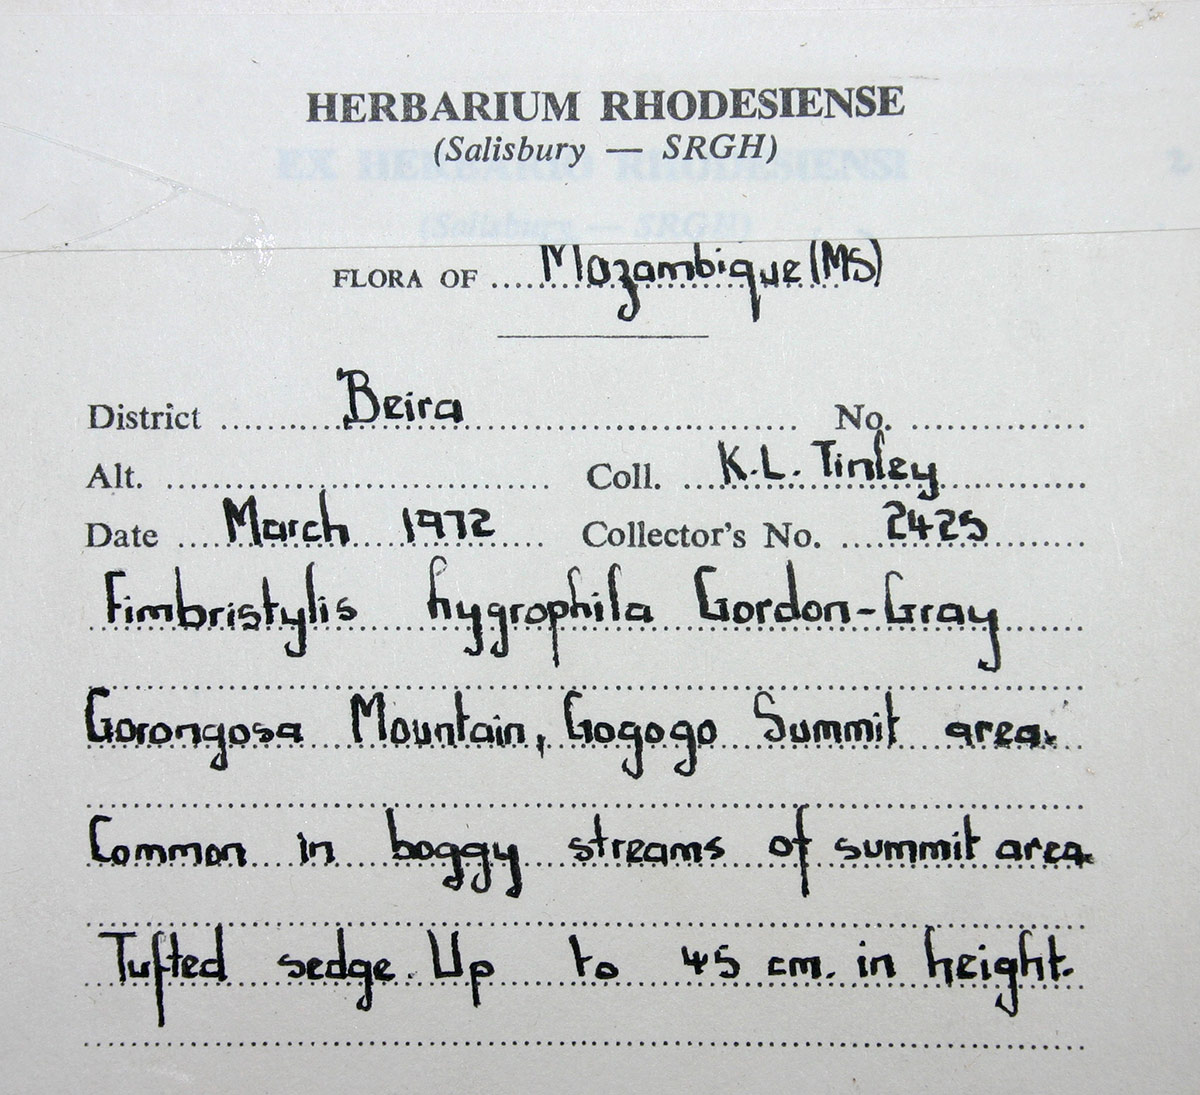 HERBARIUM RHODESIENSE
(Salisbury — SRGH)
EX HERBARIO RHODESIENSI
(Salisbury — SRGH)
FLORA OF Mozambique (MS)
District Beira No.
Alt. Coll. K.L. Tinley
Date March 1972 Collector's No. 2425
Fimbristylis hygrophila Gordon-Gray
Gorongosa Mountain, Gogogo Summit area.
Common in boggy streams of summit area.
Tufted sedge. Up to 45 cm. in height.